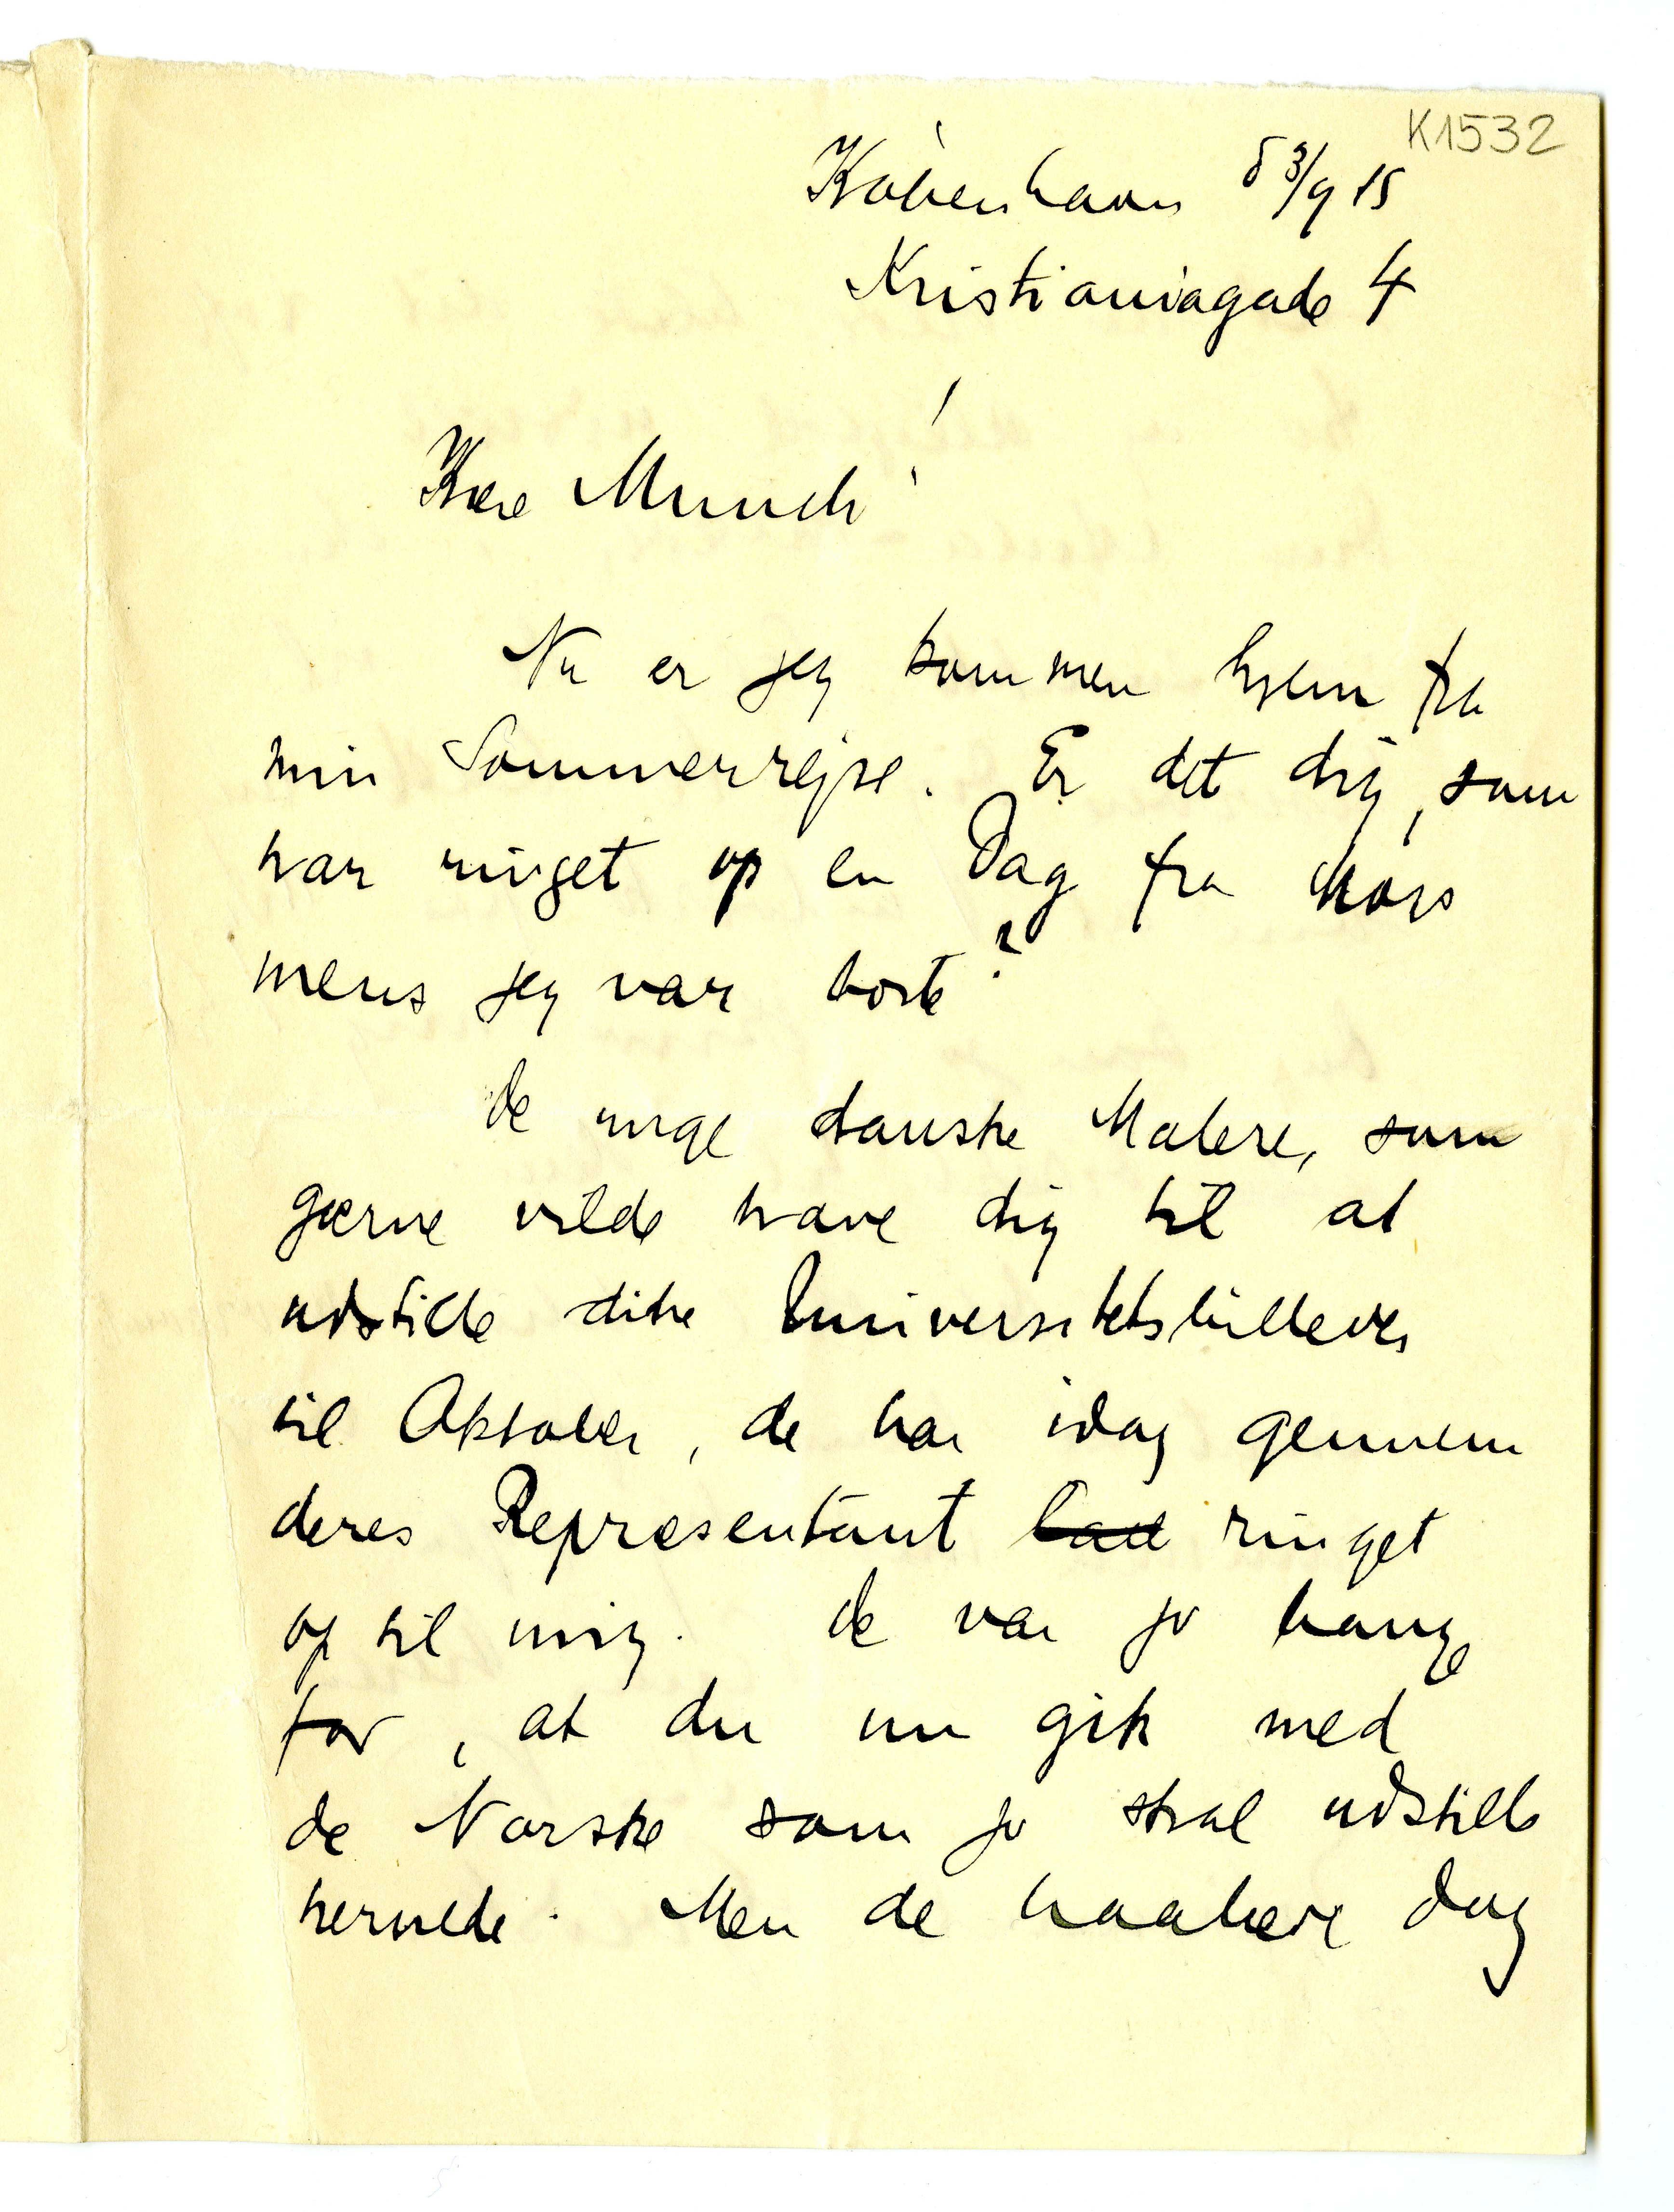 K1532
København d 3/9 15
Kristianiagade 4
Kære Munch!
Nu er jeg kommen hjem fra
min Sommerrejse. Er det dig, som
har ringet op en Dag fra Moss
mens jeg var borte?
De unge danske Malere, som
gærne vilde have dig til at
udstille dine Universitetsbilleder
til Oktober, de har idag gennem
deres Repræsentant ringet
op til mig. De var jo bange
for, at du nu gik med
de Norske som jo skal udstille
hernede. Men de haaber dog